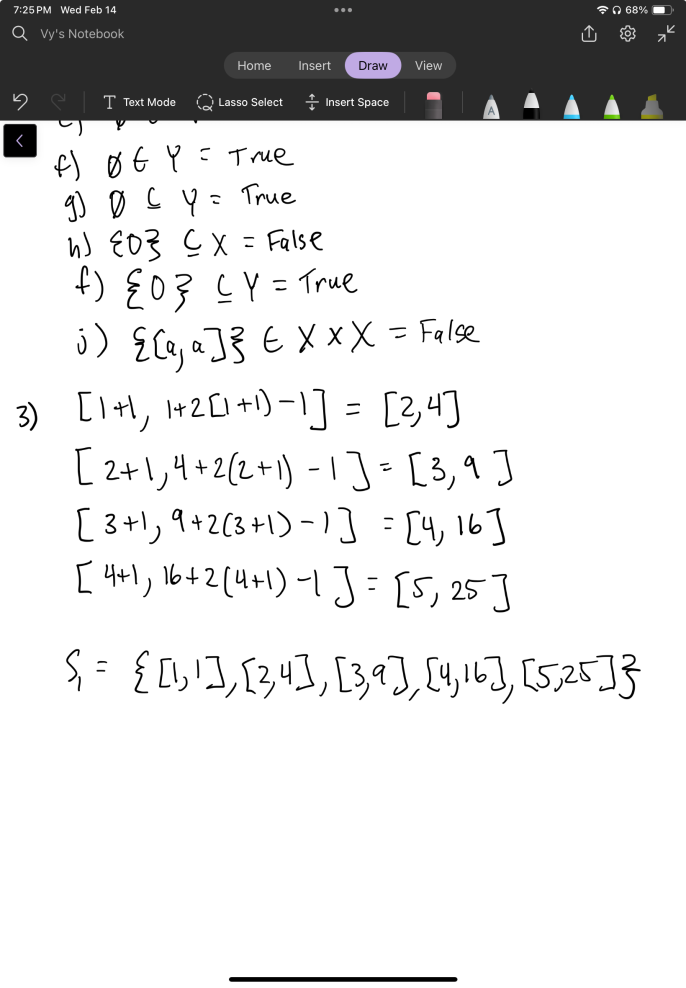 7:25 PM Wed Feb 14
68%
Vy's Notebook
Home Insert Draw View
Text Mode Lasso Select Insert Space
A
f) ∅ ∈ Y = True
g) ∅ ⊆ Y = True
h) {0} ⊆ X = False
f) {0} ⊆ Y = True
j) {[a,a]} ∈ X x X = False
3) [1+1, 1+2[1+1)-1] = [2,4]
[2+1,4+2(2+1)-1] = [3,9]
[3+1, 9+2(3+1)-1] = [4,16]
[4+1, 16+2(4+1)-1] = [5,25]
S₁ = {[1,1],[2,4],[3,9],[4,16],[5,25]}